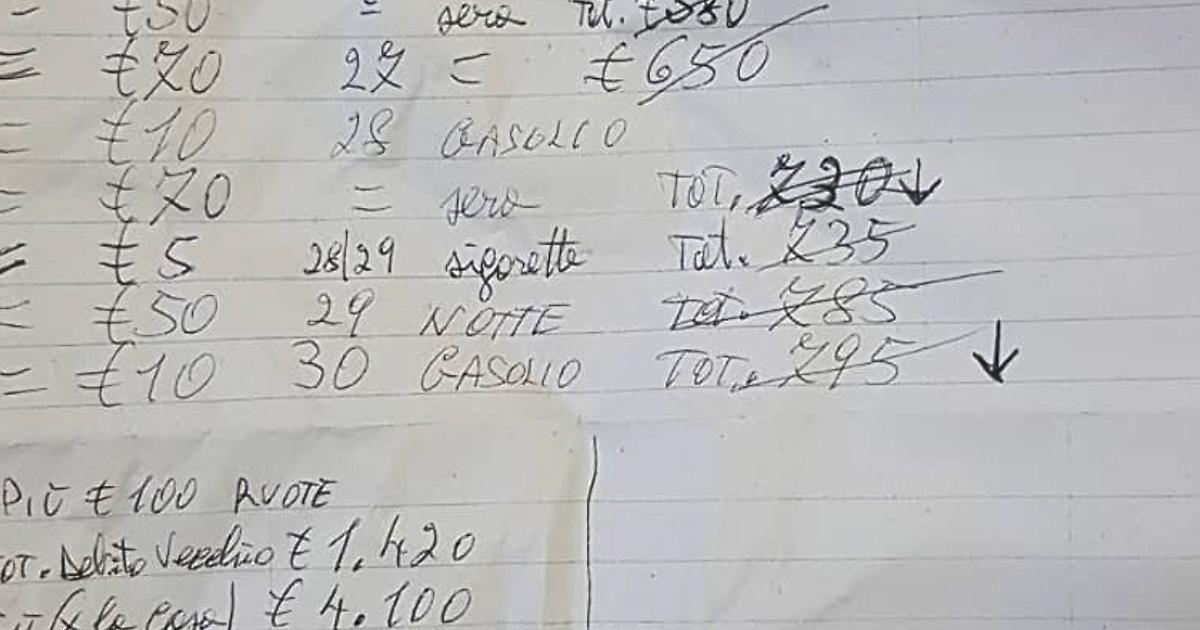 = €50 = sera Tot. €580
= €70 27 = €650
= €10 28 GASOLIO
= €70 = sera TOT. 730
= €5 28/29 sigarette Tot. 735
= €50 29 NOTTE Tot. 785
= €10 30 GASOLIO TOT. 795
PIÙ € 100 RUOTE
TOT. Debito Vecchio € 1.420
(x la casa) € 4.100